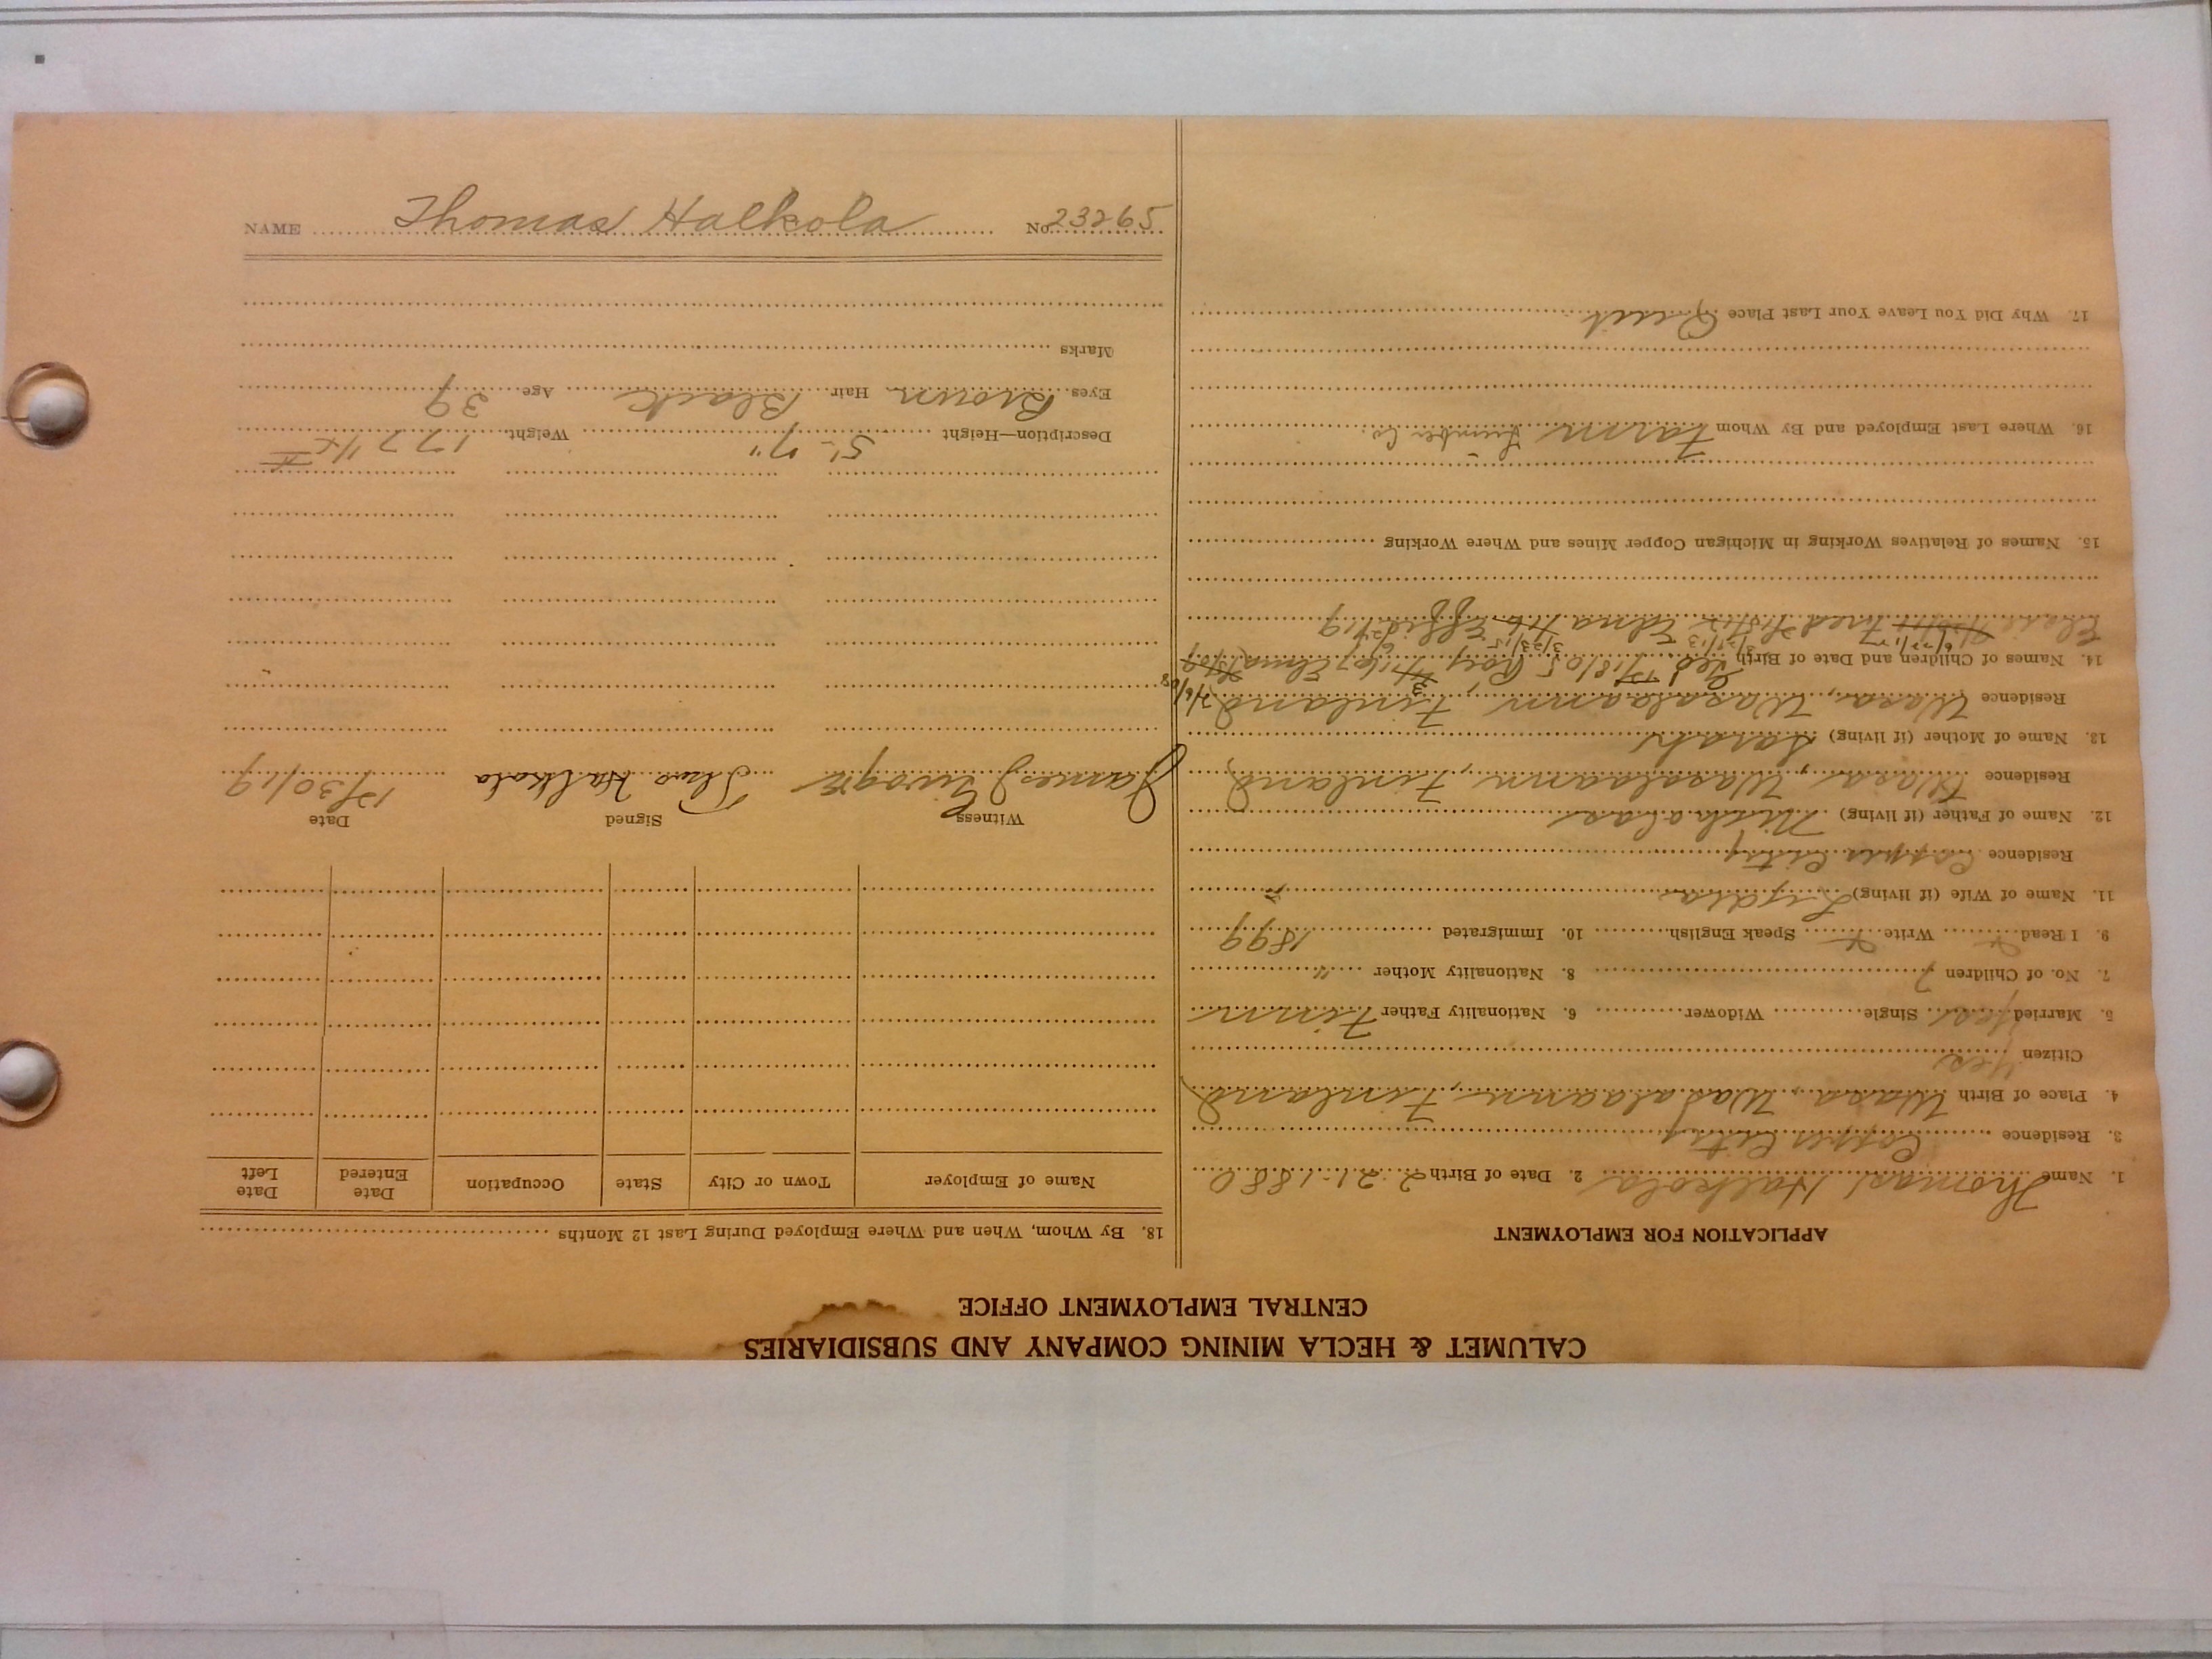 CALUMET & HECLA MINING COMPANY AND SUBSIDIARIES
CENTRAL EMPLOYMENT OFFICE
APPLICATION FOR EMPLOYMENT
1. Name Thomas Halkola 2. Date of Birth 2-21-1880
3. Residence Copper City
4. Place of Birth Wasa, Wasalaann, Finland
Citizen Yes
5. Married Yes Single Widower 6. Nationality Father Finn
7. No. of Children 7 8. Nationality Mother "
9. I Read Write Speak English 10. Immigrated 1899
11. Name of Wife (if living) Lydia
Residence Copper City
12. Name of Father (if living)
Residence Wasa, Wasalaann, Finland
13. Name of Mother (if living) Sarah
Residence Wasa, Wasalaann, Finland
14. Names of Children and Date of Birth Roy Elma
Edna
15. Names of Relatives Working in Michigan Copper Mines and Where Working
16. Where Last Employed and By Whom Farm Lumber Co.
17. Why Did You Leave Your Last Place Quit
18. By Whom, When and Where Employed During Last 12 Months
Name of Employer Town or City State Occupation Date Entered Date Left
Witness Signed Date
James Thos Halkola 12/30/19
Description—Height 5'-7" Weight 177
Eyes Brown Hair Black Age 39
Marks
NAME Thomas Halkola No. 23265